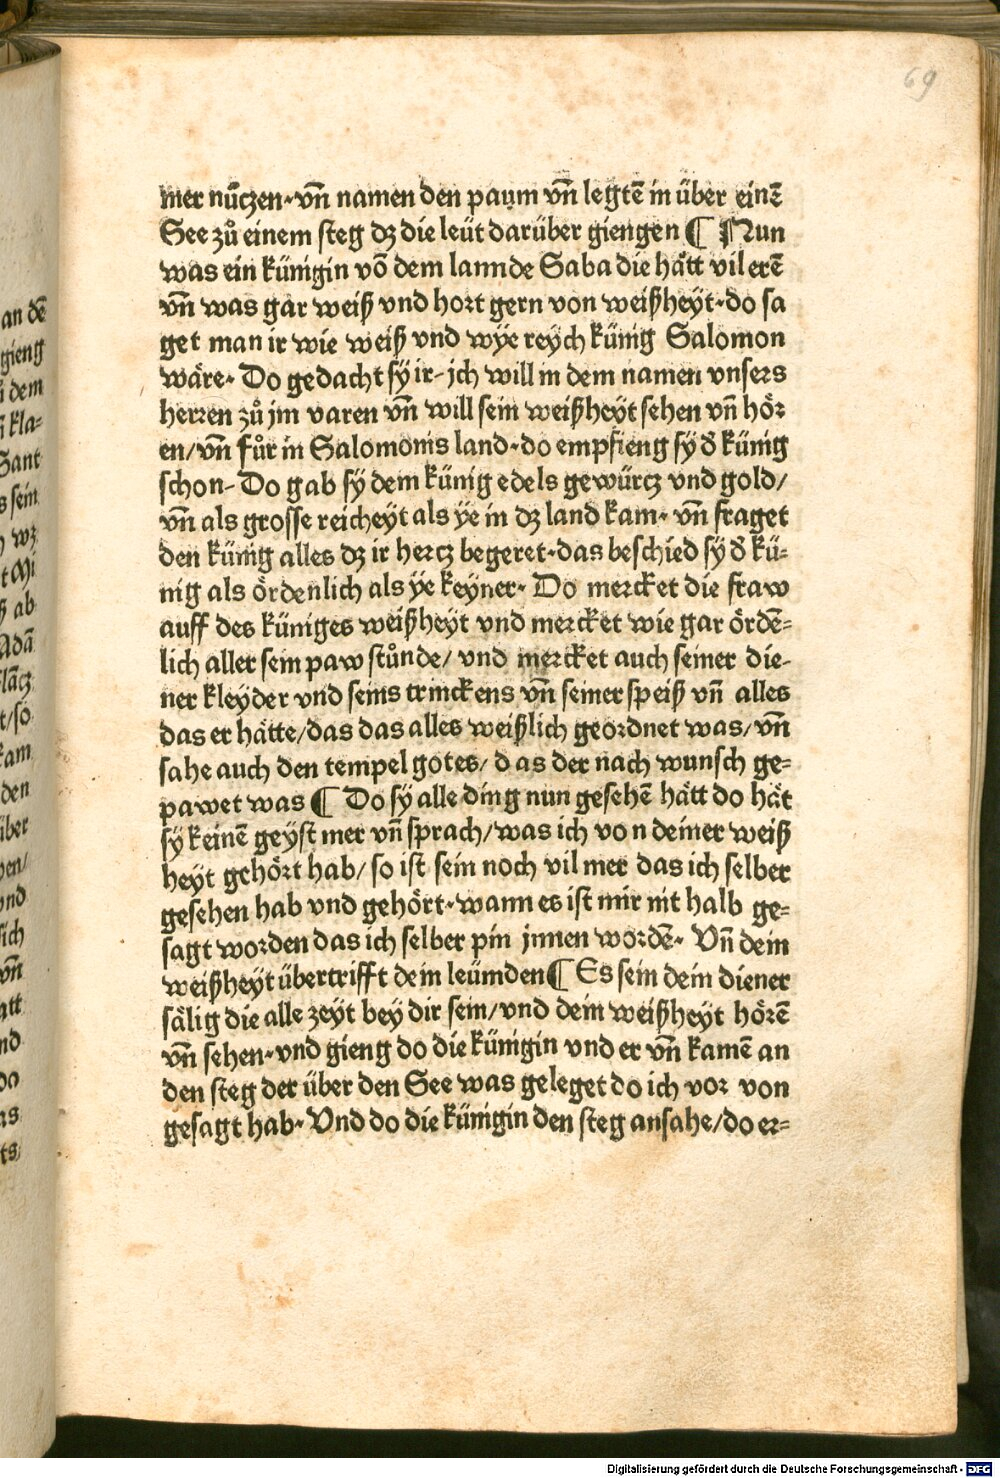 69
mer nüczen·vn̄ namen den paum vn̄ legtē in über einē
See zů einem steg dz die leüt darüber giengen ¶ Nun
was ein künigin võ dem lannde Saba die hätt vil erē
vn̄ was gar weiß vnd hort gern von weißheyt·do sa
get man ir wie weiß vnd wÿe reych künig Salomon
wäre· Do gedacht sÿ ir-jch will in dem namen vnsers
herren zů jm varen vn̄ will sein weißheyt sehen vn̄ hör
en/vn̄ fůr in Salomonis land·do empfieng sÿ d̕ künig
schon- Do gab sÿ dem künig edels gewürcz vnd gold/
vn̄ als grosse reicheyt als ÿe in dz land kam· vn̄ fraget
den künig alles dz ir hercz begeret·das beschied sÿ d̕ kü=
nig als ördenlich als ÿe keyner· Do mercket die fraw
auff des küniges weißheyt vnd mercket wie gar ördē=
lich aller sein paw stůnde/ vnd mercket auch seiner die-
ner kleyder vnd seins trinckens vn̄ seiner speiß vn̄ alles
das er hätte/das das alles weißlich geordnet was/vn̄
sahe auch den tempel gotes/ d as der nach wunsch ge=
pawet was ¶ Do sÿ alle ding nun gesehē hätt do hät
sÿ keinē geyst mer vn̄ sprach/was ich vo n deiner weiß
heyt gehört hab/ so ist sein noch vil mer das ich selber
gesehen hab vnd gehört·wann es ist mir nit halb ge=
sagt worden das ich selber pin jnnen wordē· Vn̄ dein
weißheyt übertrifft dein leümden ¶ Es sein dein diener
sälig die alle zeyt bey dir sein/vnd dein weißheyt hörē
vn̄ sehen·vnd gieng do die künigin vnd er vn̄ kamē an
den steg der über den See was geleget do ich vor von
gesagt hab· Vnd do die künigin den steg ansahe/do er=
an dē
gieng
dem
kla=
Sant
s sein
wz
ab
Adā
kam
den
über
vnd
sich
vn̄
Digitalisierung gefördert durch die Deutsche Forschungsgemeinschaft - DFG